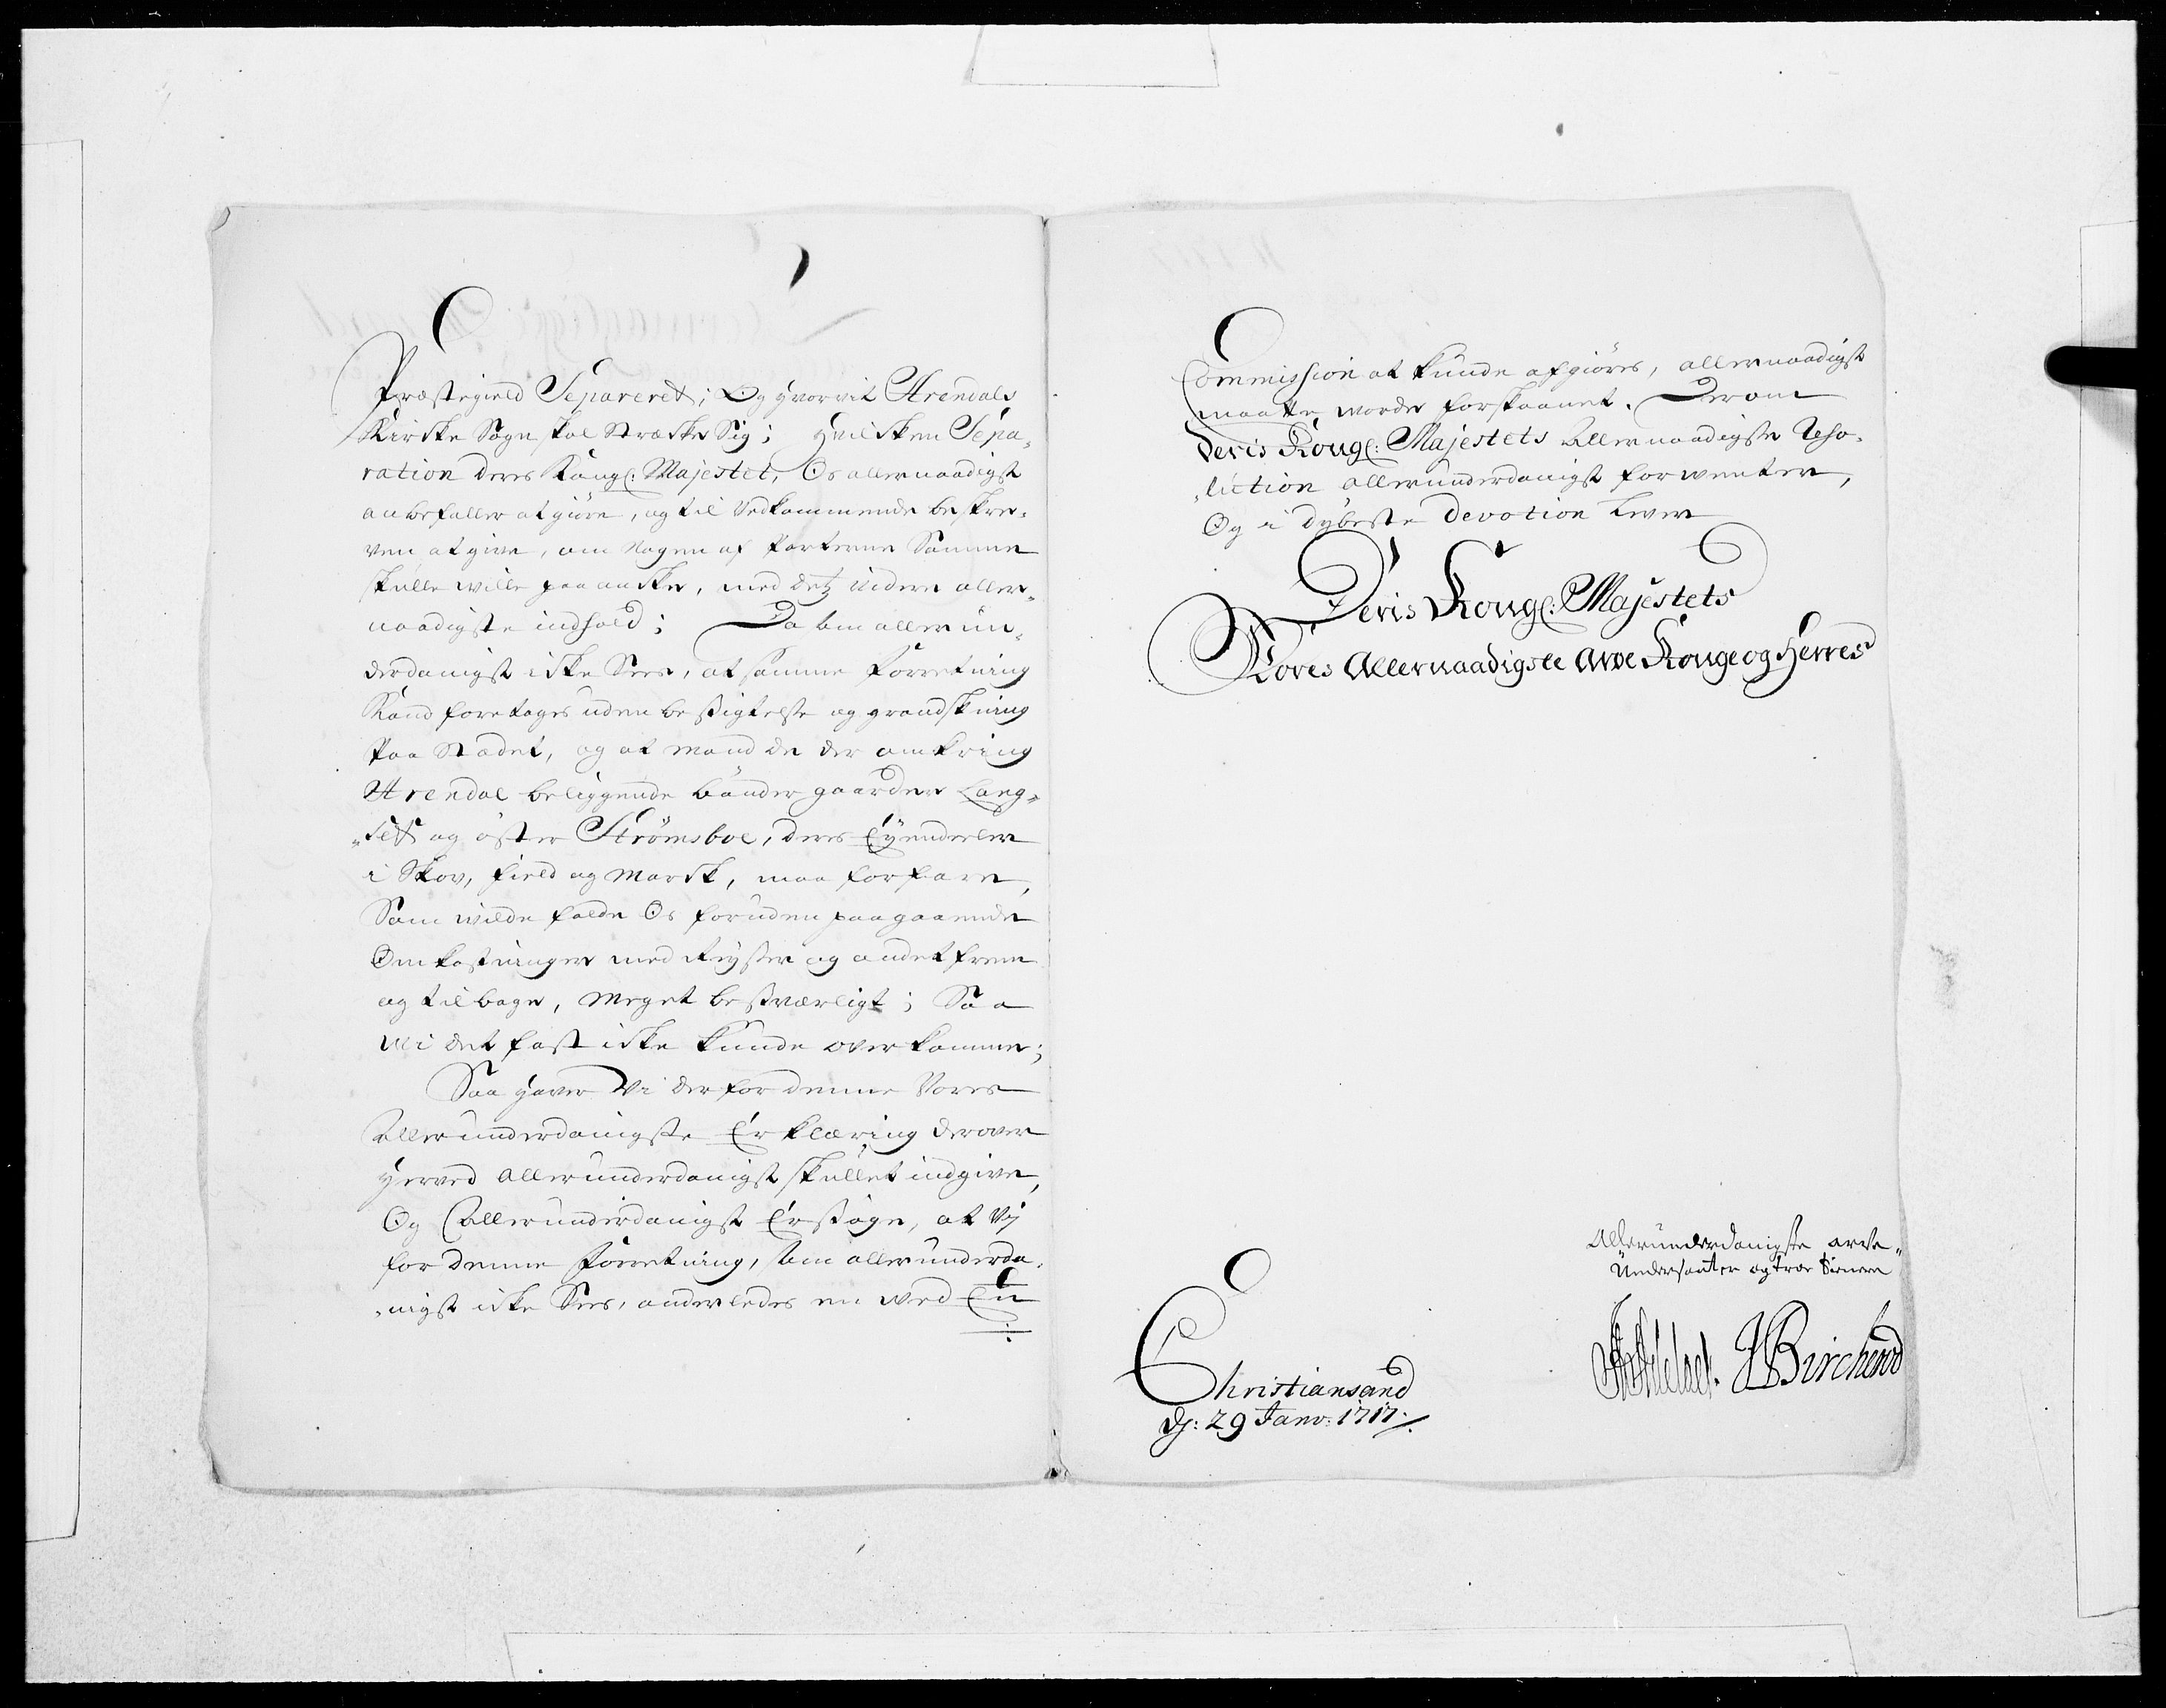 Præstegield Separeret; Og hvorvit Arendals
Kirke Sogn skal stræke Sig; hvilken Sepa-
ration deris Kongl: Majestet, Os allernaadigst
anbefaller at giøre, og til vedkommende beskre-
ven at give, om Nogen af Parterne Samme
skulle wille paa anke, med detz videre aller-
naadigste indhold; Da som allerun-
derdanigst icke Sees, at samme Forretning
Kand foretages uden besigtelse og grandskning
Paa Stædet, og at mand de der omkring
Arendal beliggende bønder gaarder Lang-
-sei og øster Strømsboe, deres Eyendeler
i Skov, field og Marck, maa forfare,
Som wilde falde Os foruden paagaaende
Omkostninger med Reyser og andet frem
og tilbage, meget besværligt; Saa
Wi det fast icke kunde overkomme;
Saa haver Vi derfor denne Vores
Allerunderdanigste Erklæring derover
herved allerunderdanigst skullet indgive,
Og Allerunderdanigst Ersøge, at Vj
for denne Forretning, som allerunderda-
-nigst icke Sees, anderledes en wed En
Commission at kunde afgiøres, allernaadigst
maatte worde forskaanet. Derom
Deris Kongl: Majestets Allernaadigste Reso-
-lution allerunderdanigst forwenter,
Og i dybeste Devotion lever
Deris Kongl: Majestets
Vores Allernaadigste Arve Konge og Herres
Allerunderdanigste arve-
Undersaatter og troe tienere
JBirchenod
Christiansand
D: 29 Janv: 1717.